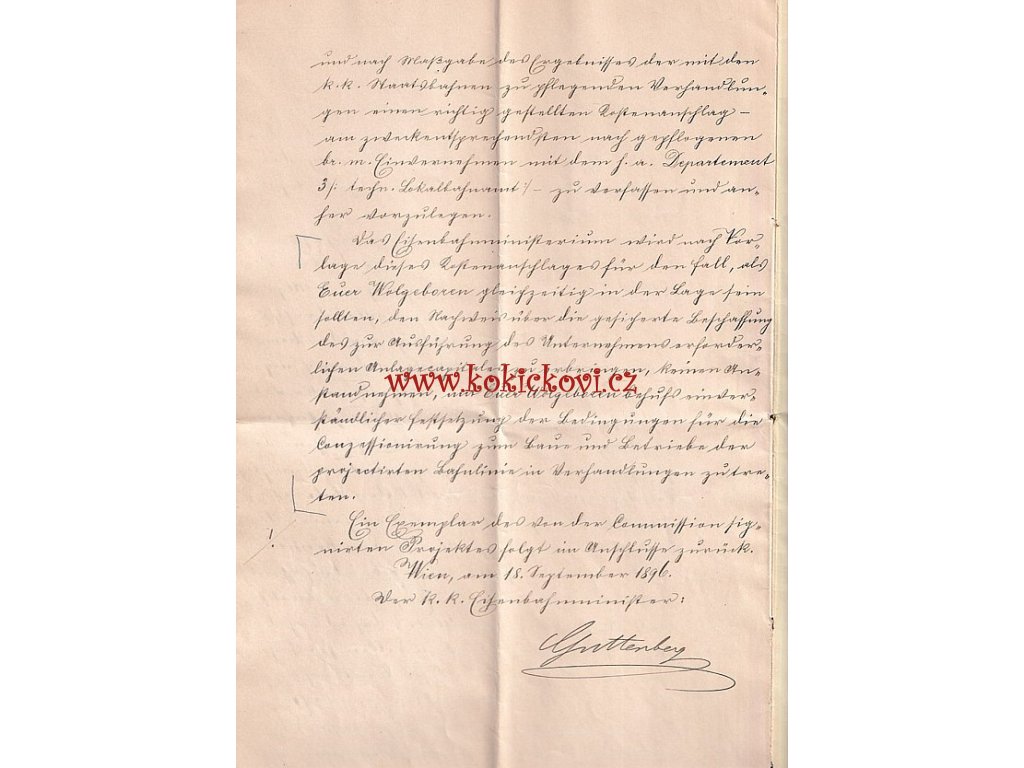 und nach Maßgabe des Ergebnisses der mit den
k. k. Staatsbahnen zu pflegenden Verhandlun-
gen einen richtig gestellten Kostenanschlag –
am zweckentsprechendsten nach gepflogenen
br. m. Einvernehmen mit dem h. a. Departement
3 /: techn. Lokalbahnamt :/ – zu verfassen und an-
her vorzulegen.
Das Eisenbahnministerium wird nach Vor-
lage dieses Kostenanschlages für den Fall, als
Euer Wolgeboren gleichzeitig in der Lage sein
sollten, den Nachweis über die gesicherte Beschaffung
des zur Ausführung des Unternehmens erforder-
lichen Anlagecapitales zu erbringen, keinen An-
www.kokickovi.cz
stand nehmen, mit Euer Wolgeboren behufs einver-
ständlicher Festsetzung der Bedingungen für die
Conzessionirung zum Baue und Betriebe der
projectirten Bahnlinie in Verhandlungen zu tre-
ten.
Ein Exemplar des von der Commission sig-
nirten Projektes folgt im Anschlusse zurück.
Wien, am 18. September 1896.
Der k. k. Eisenbahnminister:
Guttenberg